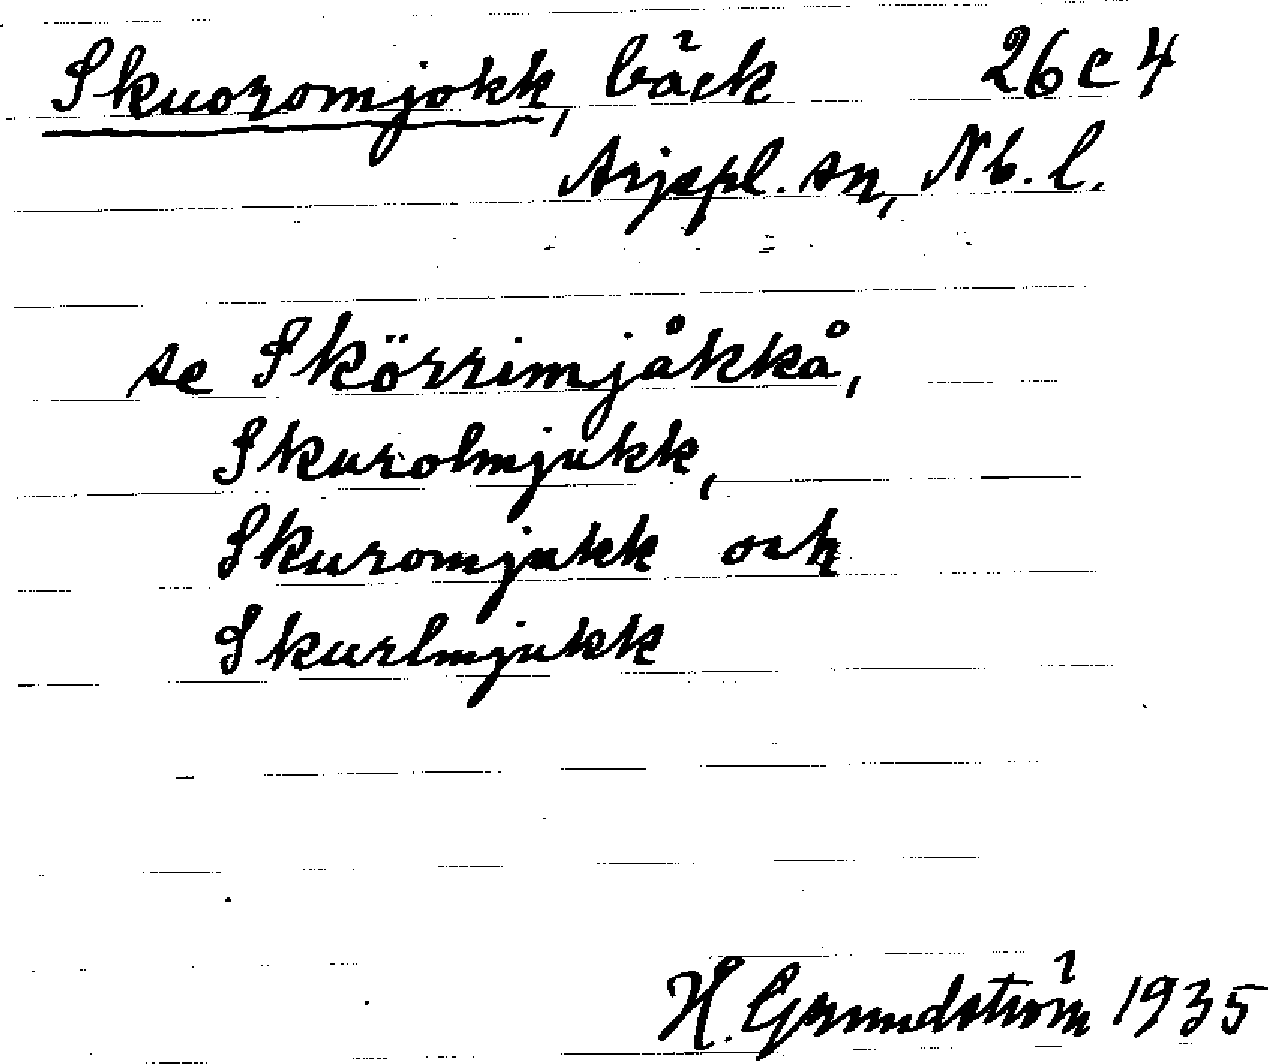 Skuoromjokk, bäck 26c4
Arjepl. sn, Nb. l.
se Skörrimjåkkå,
Skurolmjukk,
Skuromjukk och
Skurlmjukk
H. Grundström 1935